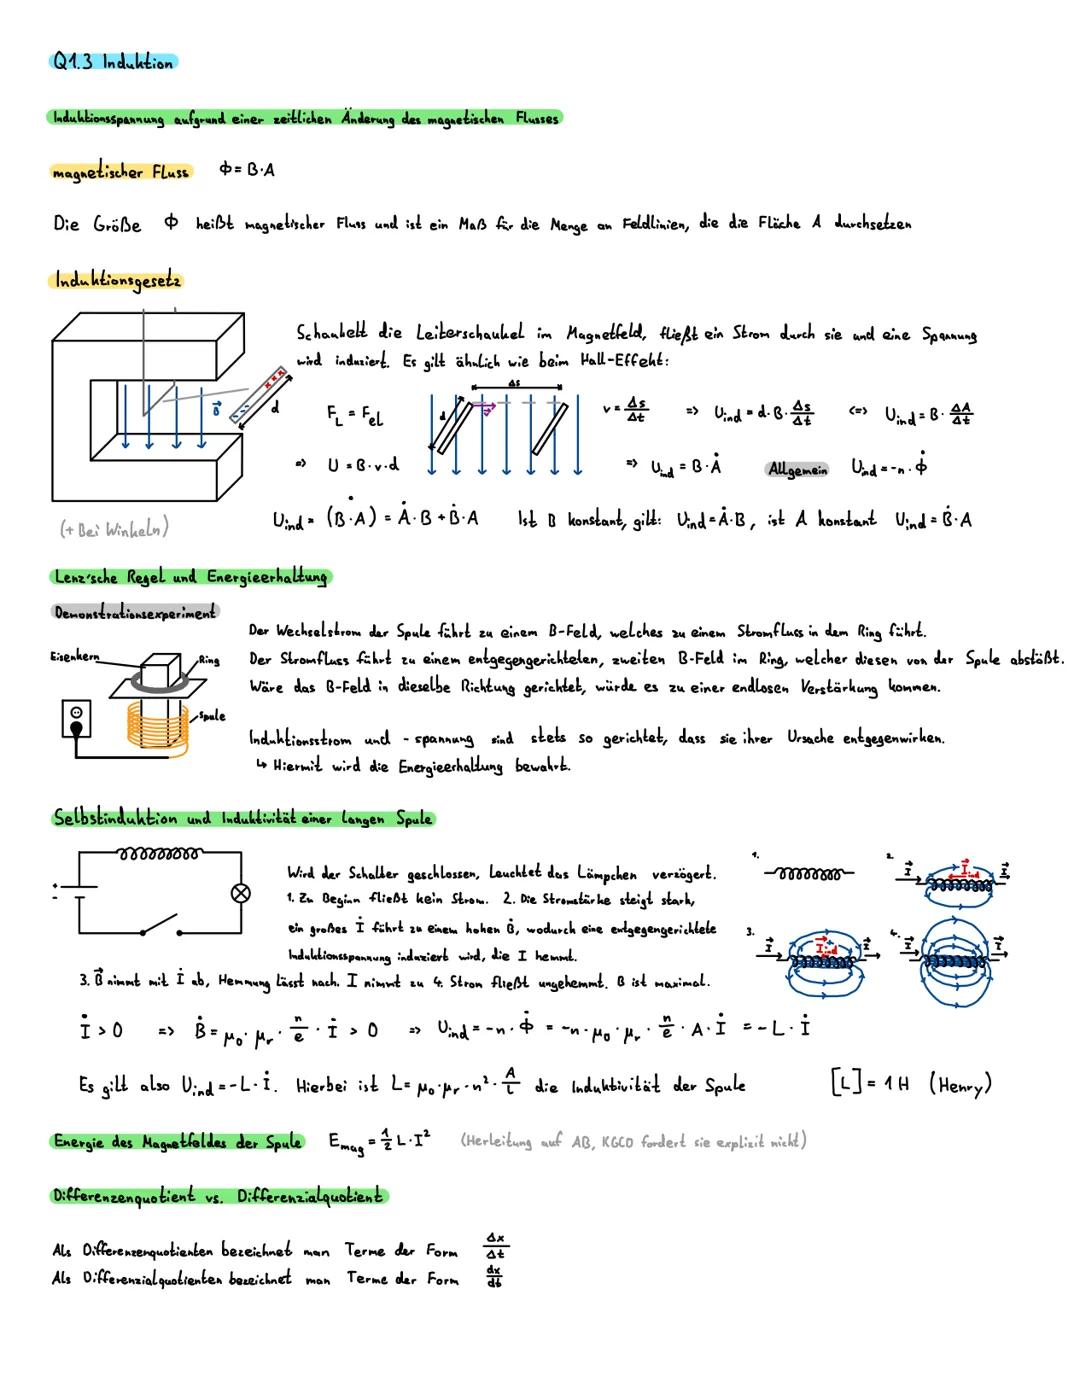 Q1.3 Induktion
Induktionsspannung aufgrund einer zeitlichen Änderung des magnetischen Flusses
magnetischer Fluss ϕ = B·A
Die Größe ϕ heißt magnetischer Fluss und ist ein Maß für die Menge an Feldlinien, die die Fläche A durchsetzen
Induktionsgesetz
Schaukelt die Leiterschaukel im Magnetfeld, fließt ein Strom durch sie und eine Spannung
wird induziert. Es gilt ähnlich wie beim Hall-Effekt:
B⃗
d
F_L = F_el
d
v⃗
Δs
v = Δs/Δt => U_ind = d·B·Δs/Δt <=> U_ind = B·ΔA/Δt
=> U = B·v·d
=> U_ind = B·Ȧ Allgemein U_ind = -n·ϕ̇
(+ Bei Winkeln)
U_ind = (B·A)˙ = Ȧ·B + Ḃ·A Ist B konstant, gilt: U_ind = Ȧ·B, ist A konstant U_ind = Ḃ·A
Lenz'sche Regel und Energieerhaltung
Demonstrationsexperiment
Eisenkern
Ring
Spule
Der Wechselstrom der Spule führt zu einem B-Feld, welches zu einem Stromfluss in dem Ring führt.
Der Stromfluss führt zu einem entgegengerichteten, zweiten B-Feld im Ring, welcher diesen von der Spule abstößt.
Wäre das B-Feld in dieselbe Richtung gerichtet, würde es zu einer endlosen Verstärkung kommen.
Induktionsstrom und -spannung sind stets so gerichtet, dass sie ihrer Ursache entgegenwirken.
↳ Hiermit wird die Energieerhaltung bewahrt.
Selbstinduktion und Induktivität einer langen Spule
+
-
Wird der Schalter geschlossen, leuchtet das Lämpchen verzögert.
1. Zu Beginn fließt kein Strom. 2. Die Stromstärke steigt stark,
ein großes İ führt zu einem hohen Ḃ, wodurch eine entgegengerichtete
Induktionsspannung induziert wird, die I hemmt.
3. B⃗ nimmt mit İ ab, Hemmung lässt nach. I nimmt zu 4. Strom fließt ungehemmt. B ist maximal.
1.
2. I⃗ I⃗_ind I⃗
3. I⃗ I⃗_ind I⃗
4. I⃗ I⃗
İ > 0 => Ḃ = μ₀·μᵣ·n/e·İ > 0 => U_ind = -n·ϕ̇ = -n·μ₀·μᵣ·n/e·A·İ = -L·İ
Es gilt also U_ind = -L·İ. Hierbei ist L = μ₀·μᵣ·n²·A/l die Induktivität der Spule [L] = 1 H (Henry)
Energie des Magnetfeldes der Spule E_mag = ½ L·I² (Herleitung auf AB, KGCO fordert sie explizit nicht)
Differenzenquotient vs. Differenzialquotient
Als Differenzenquotienten bezeichnet man Terme der Form Δx/Δt
Als Differenzialquotienten bezeichnet man Terme der Form dx/dt